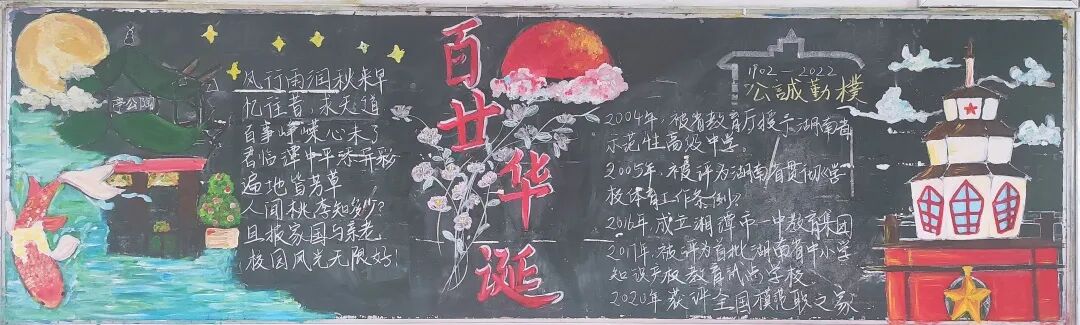 亭公陶
风行雨润秋来早
忆往昔,求天道
百事峥嵘心未了
君临潭中平添异彩
遍地皆芳草
人间桃李知多少?
且报家国与亲老
校园风光无限好!
百廿华诞
1902 — 2022
公誠勤樸
2004年,被省教育厅授予湖南省
示范性高级中学。
2005年,被评为湖南省贯彻《学
校体育工作条例》?
2016年,成立湘潭市一中教育集团
2017年,被评为首批湖南省中小学
知识产权教育试点学校
2020年获评全国模范职工之家